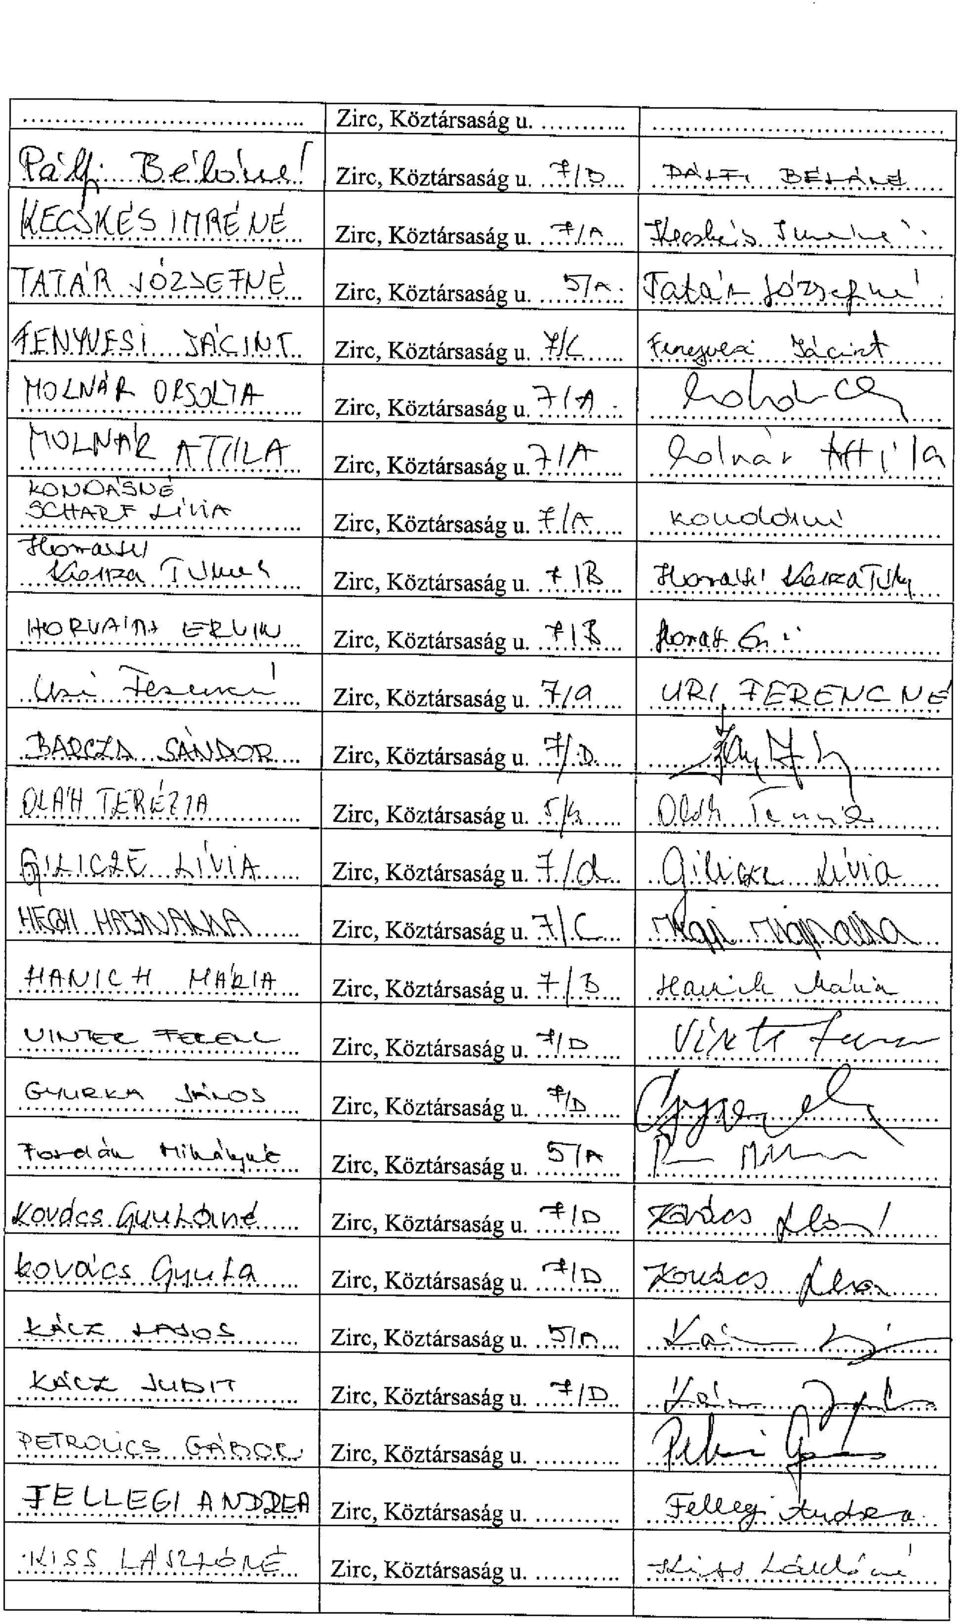 Zirc, Köztársaság u. ............
Pálfi Béláné Zirc, Köztársaság u. 7/D PÁLFI BÉLÁNÉ
KECSKÉS IMRÉNÉ Zirc, Köztársaság u. 7/A Kecskés Imréné
TATÁR JÓZSEFNÉ Zirc, Köztársaság u. 5/A Tatár Józsefné
FENYVESI JÁCINT Zirc, Köztársaság u. 7/C Fenyvesi Jácint
MOLNÁR ORSOLYA Zirc, Köztársaság u. 7/A
MOLNÁR ATTILA Zirc, Köztársaság u. 7/A Molnár Attila
KONDÁSNÉ
SCHARF LÍVIA Zirc, Köztársaság u. 7/A Kondásné
Zirc, Köztársaság u. 7/B
ERVIN Zirc, Köztársaság u. 7/B
Uri Ferencné Zirc, Köztársaság u. 7/a URI FERENCNÉ
BARCZA SÁNDOR Zirc, Köztársaság u. 7/D
OLÁH TERÉZIA Zirc, Köztársaság u. Oláh Terézia
GILICZE LÍVIA Zirc, Köztársaság u. 7/d Gilicze Lívia
HEGYI HAJNALKA Zirc, Köztársaság u. 7/C Hegyi Hajnalka
HANICH MÁRIA Zirc, Köztársaság u. 7/B Hanich Mária
VINTER FERENC Zirc, Köztársaság u. 7/D
GYURKA JÁNOS Zirc, Köztársaság u. 7/D
Mihályné Zirc, Köztársaság u. 5/A
Kovács Gyuláné Zirc, Köztársaság u. 7/D Kovács
Kovács Gyula Zirc, Köztársaság u. 7/D Kovács
KÁCZ LAJOS Zirc, Köztársaság u. 5/A
KÁCZ JUDIT Zirc, Köztársaság u. 7/D
PETROVICS GÁBOR Zirc, Köztársaság u. ............
FELLEGI ANDREA Zirc, Köztársaság u. ............ Fellegi Andrea
KISS LÁSZLÓNÉ Zirc, Köztársaság u. ............ Kiss Lászlóné